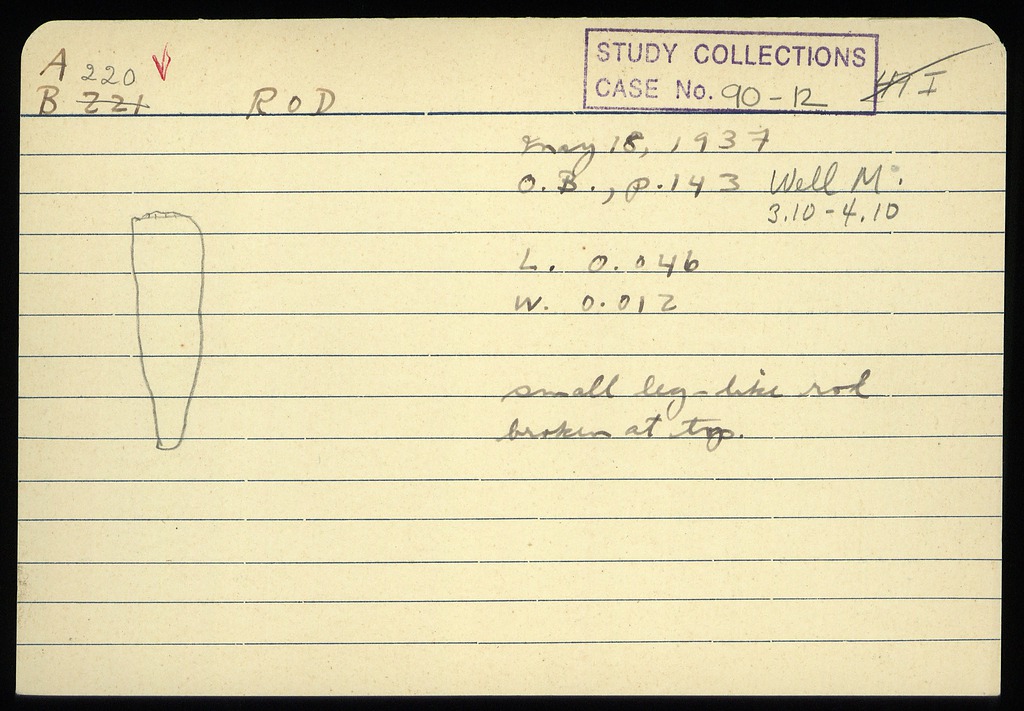 A 220
B 221
ROD
STUDY COLLECTIONS
CASE No. 90-12
I
May 18, 1937
O.B., p.143 Well M.
3.10-4.10
L. 0.046
W. 0.012
small leg-like rod
broken at top.